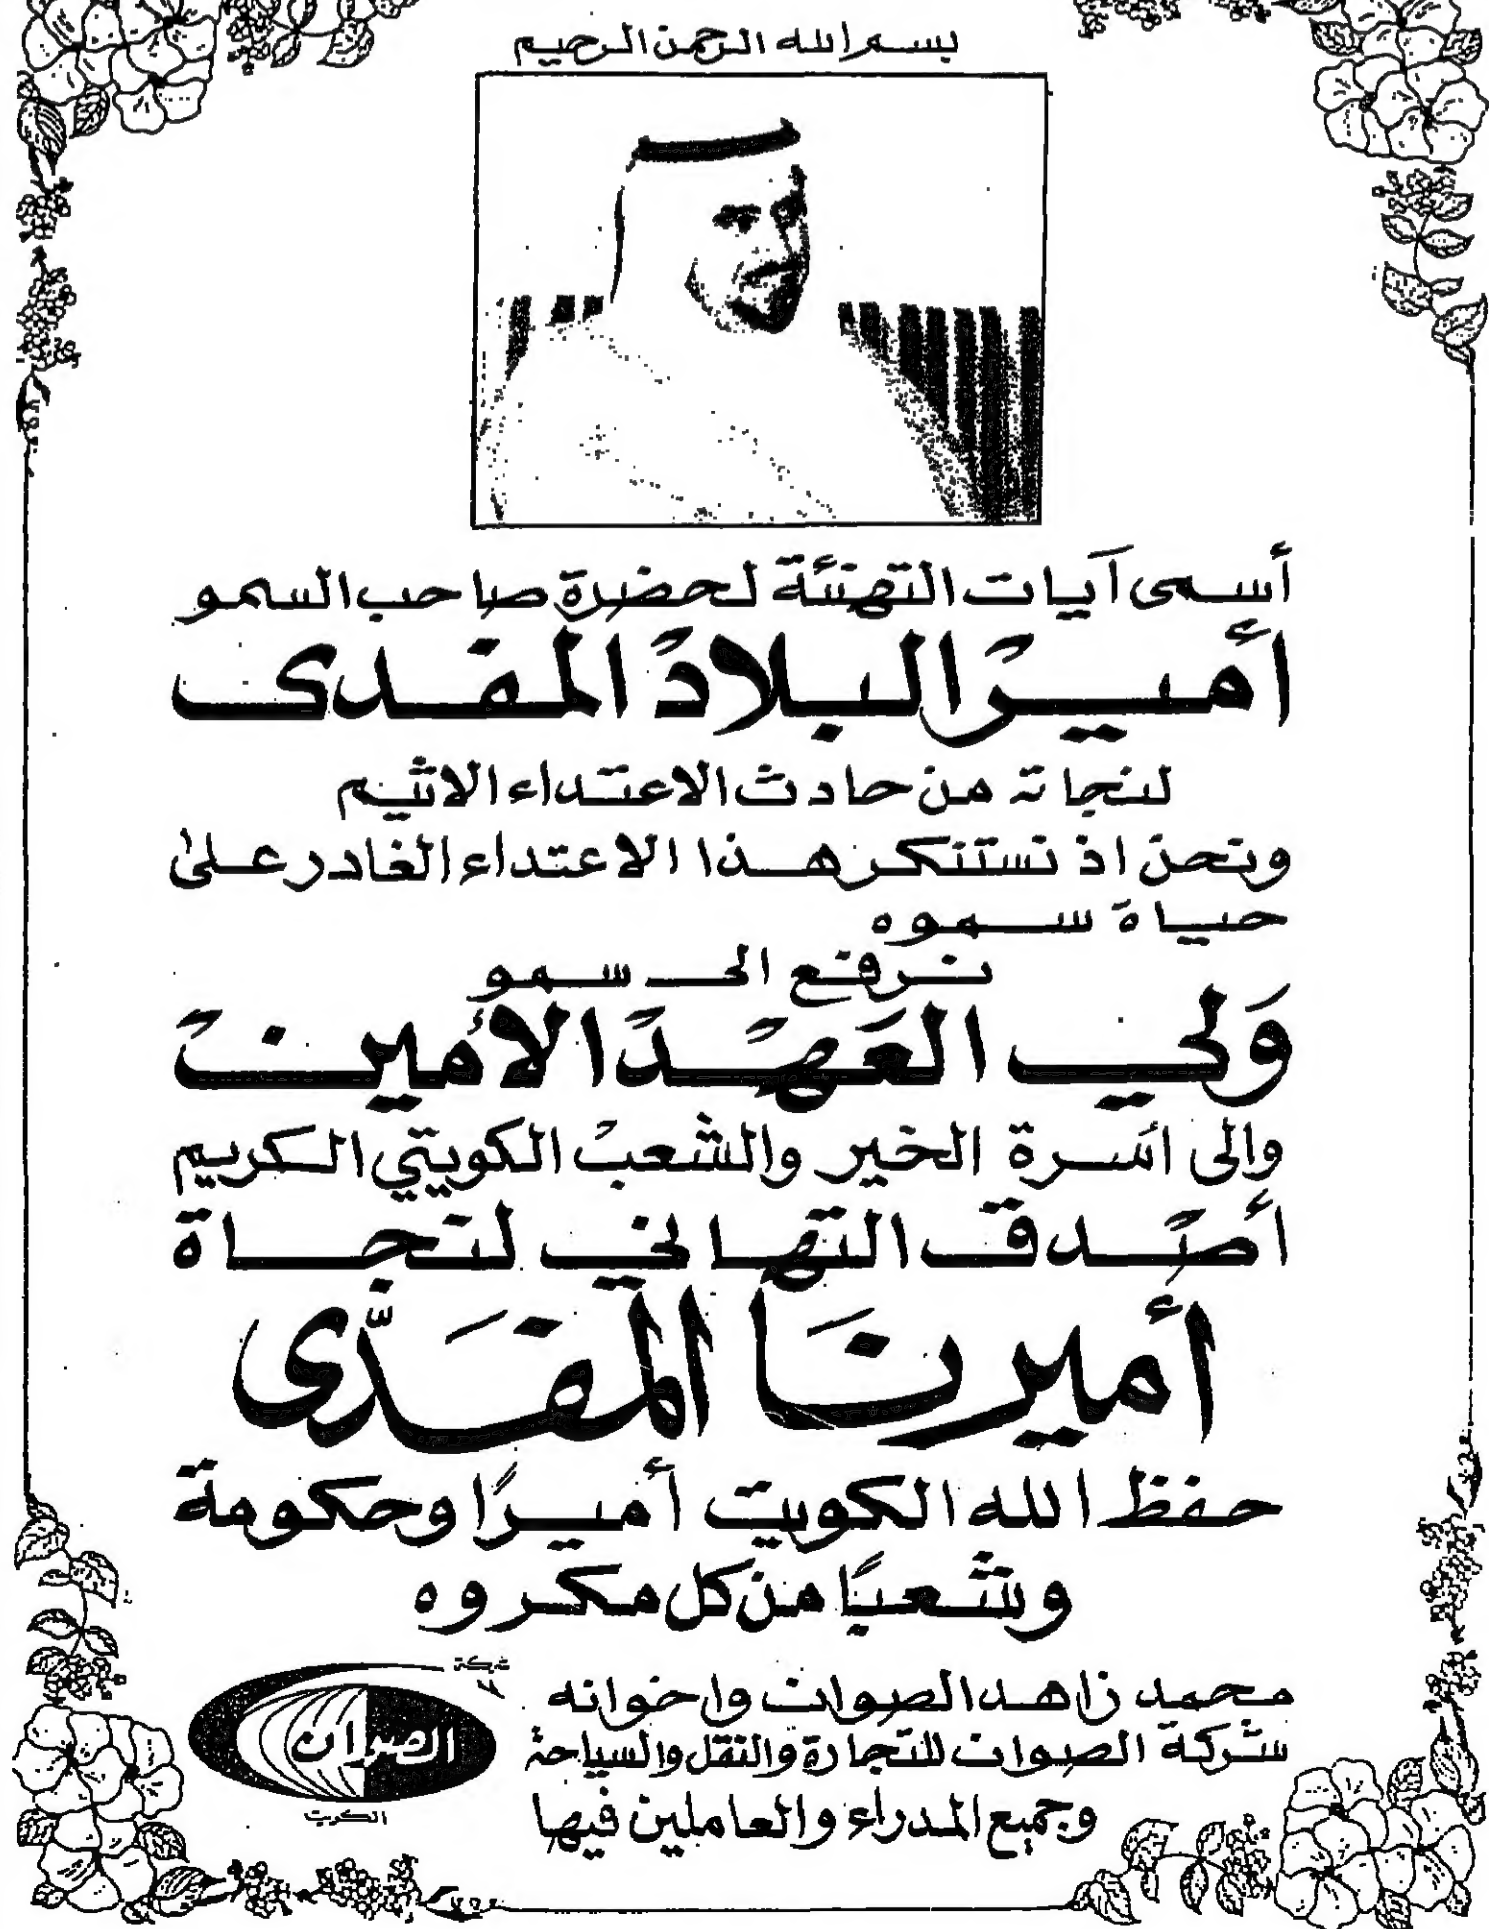 بسم الله الرحمن الرحيم
أسمى آيات التهنئة لحضرة صاحب السمو
أمير البلاد المفدى
لنجاته من حادث الاعتداء الاثيم
ونحن اذ نستنكر هذا الاعتداء الغادر على
حياة سموه
نرفع الى سمو
ولي العهد الأمين
والى اسرة الخير والشعب الكويتي الكريم
أصدق التهاني لنجاة
أميرنا المفدى
حفظ الله الكويت أميرًا وحكومة
وشعبًا من كل مكروه
محمد زاهد الصوان واخوانه
شركة الصوان للتجارة والنقل والسياحة
وجميع المدراء والعاملين فيها
شركة
الصوان
الكويت